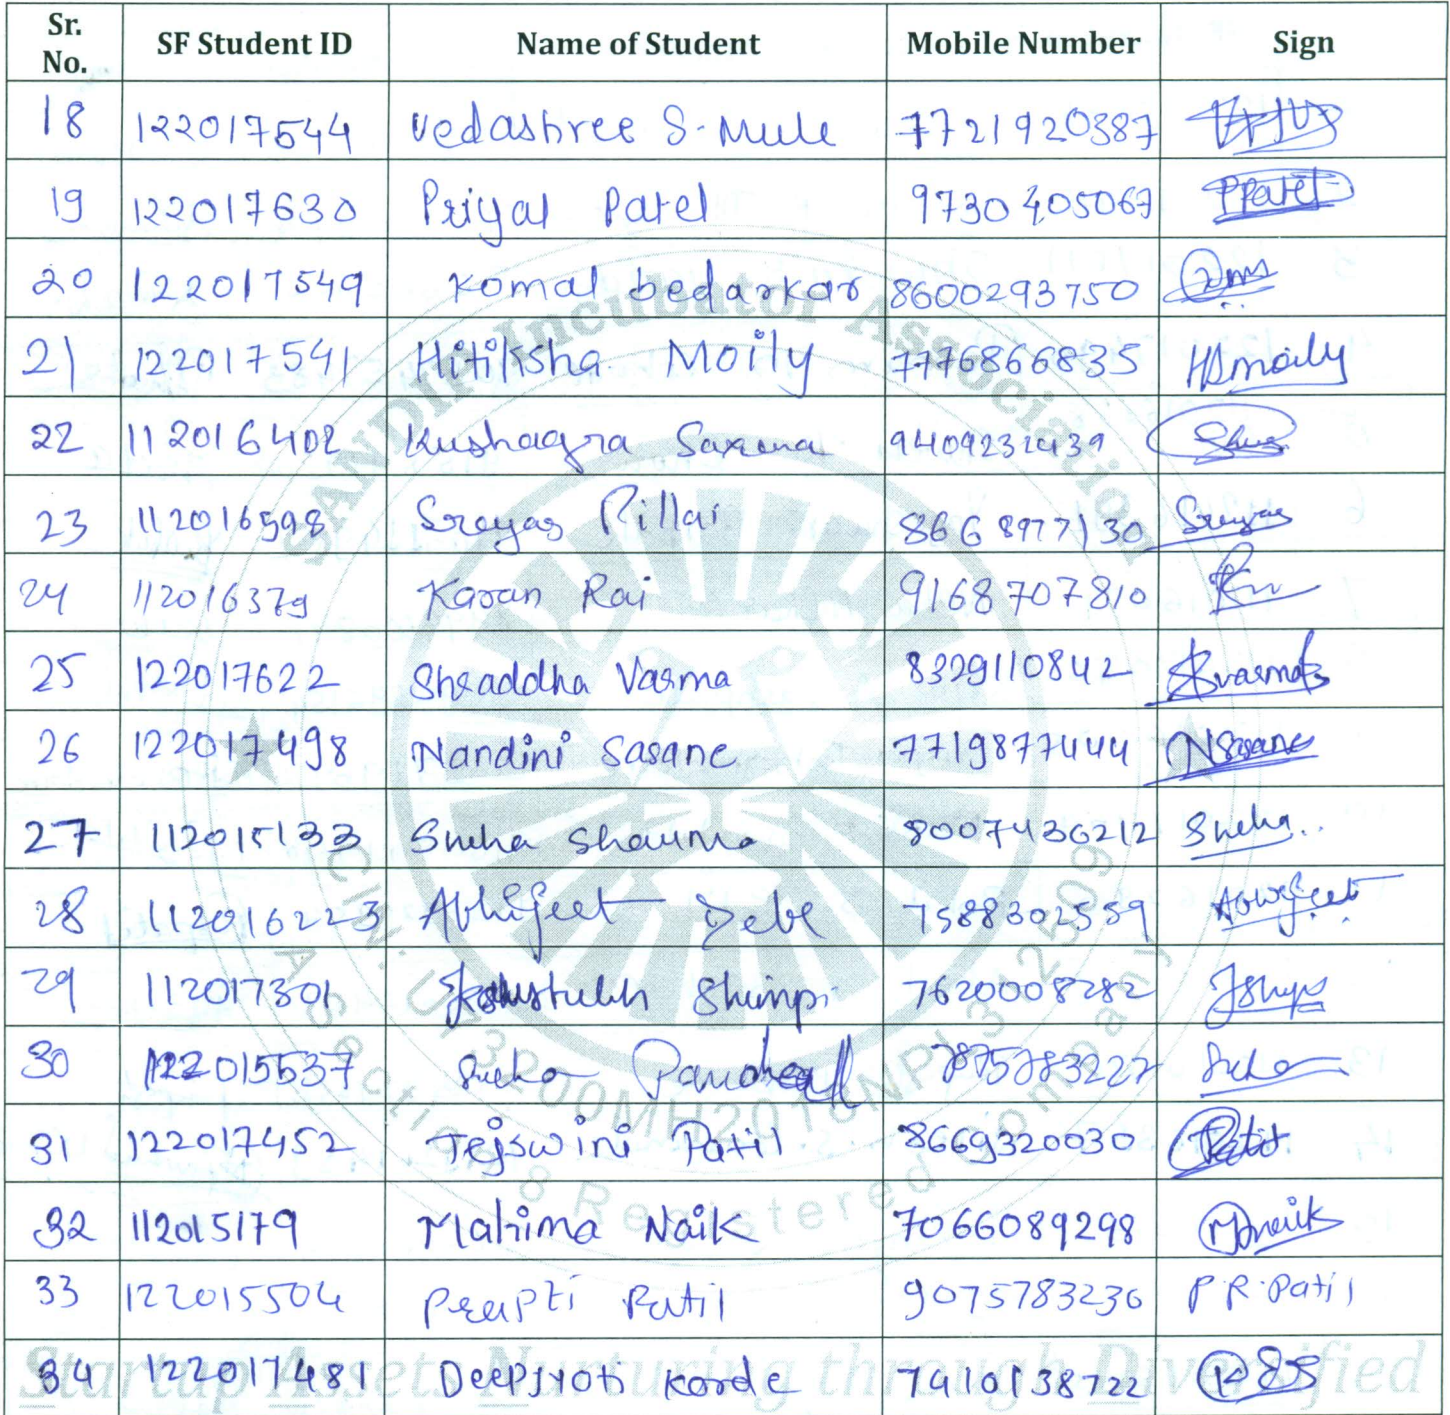 Sr. No. SF Student ID Name of Student Mobile Number Sign
18 122017544 Vedashree S. Mule 7721920387
19 122017630 Priyal Patel 9730405067 PPatel
20 122017549 Komal bedarkar 8600293750
21 122017541 Hitiksha Moily 7776866835 HSmoily
22 112016402 Kushagra Saxena 9409232439
23 112016598 Sreyas Pillai 8668977130 Sreyas
24 112016379 Karan Rai 9168707810
25 122017622 Shraddha Varma 8329110842 Svarma
26 122017498 Nandini Sasane 7719877444 NSasane
27 112015133 Sneha Sharma 8007436212 Sneha..
28 112016223 Abhijeet Debe 7588302559 Abhijeet
29 112017301 Shimpi 7620008282
30 122015537 Sneha 7875783227 Sneha
31 122017452 Tejswini Patil 8669320030 Patil
32 112015179 Mahima Naik 7066089298 Mnaik
33 122015504 Prapti Patil 9075783236 P R Patil
34 122017481 Deepjyoti Korde 7410138722
SANDIP Incubator Association
CIN: U73200MH2016NPL312509
A Section 8 Registered Company
Startup Assets Nurturing through Diversified